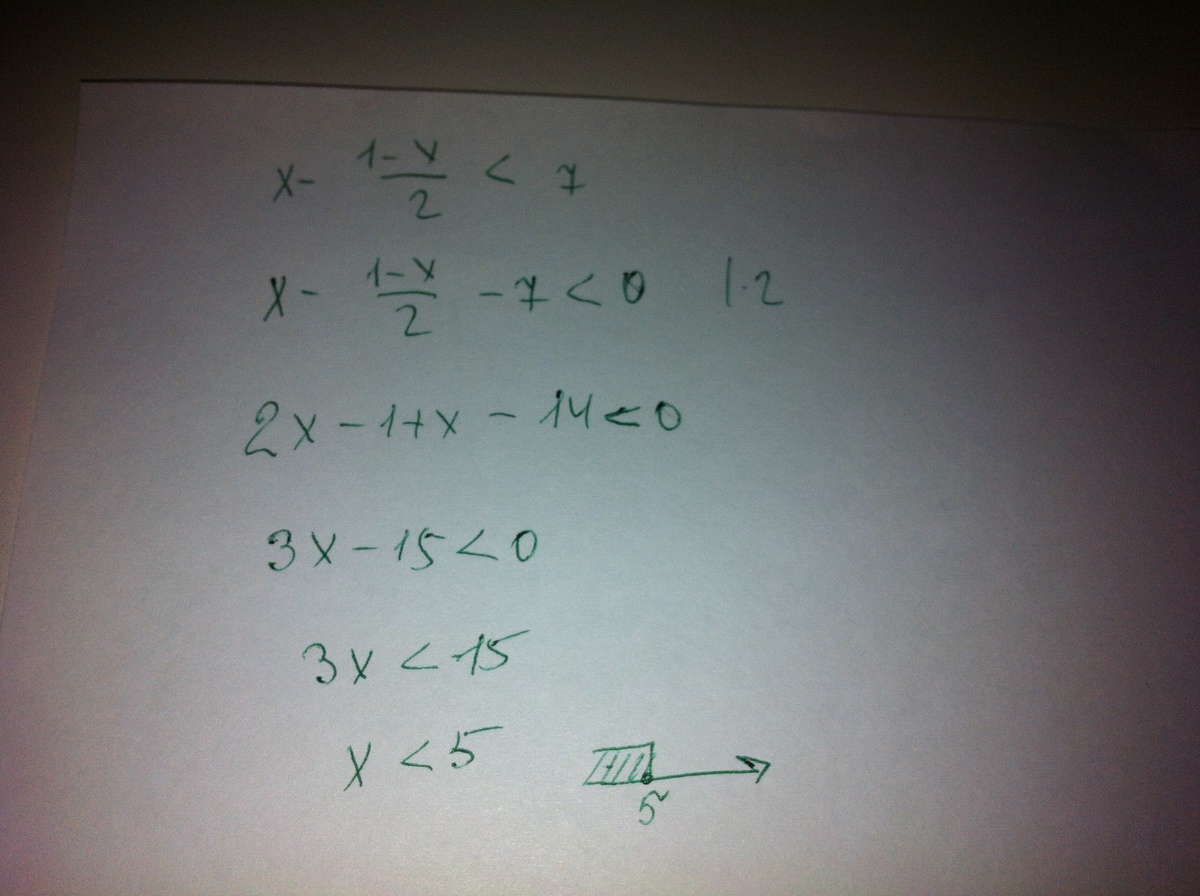 x - (1-x)/2 < 7
x - (1-x)/2 - 7 < 0 |·2
2x - 1 + x - 14 < 0
3x - 15 < 0
3x < 15
x < 5
5